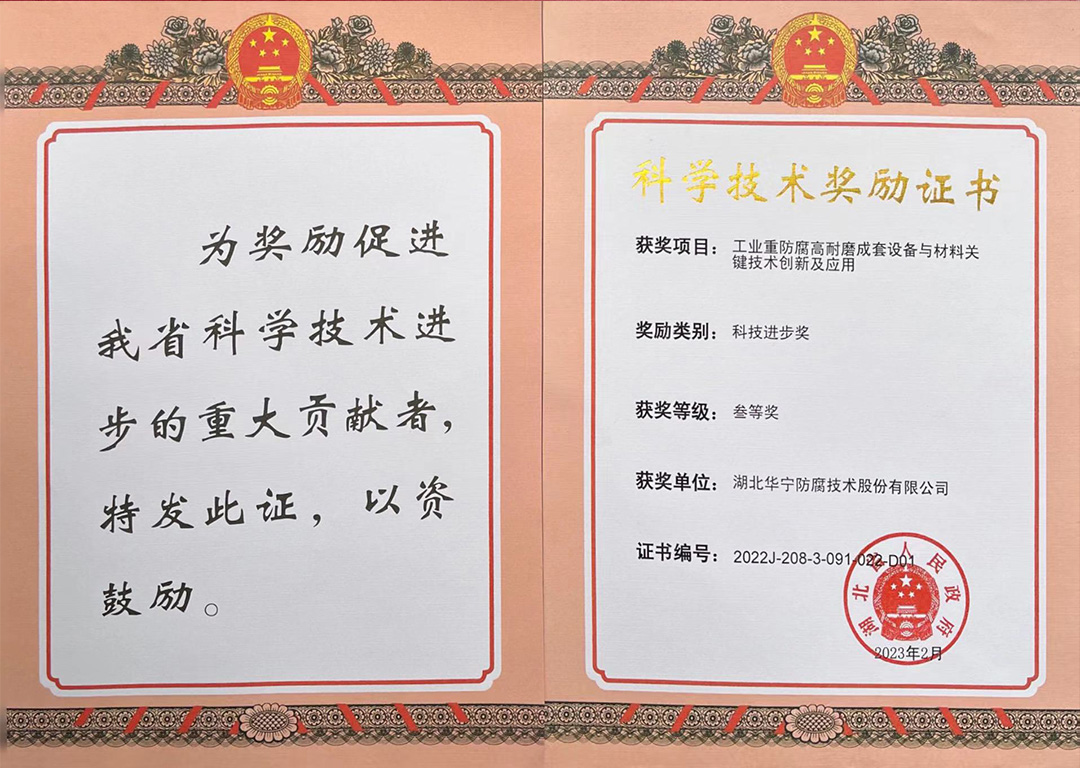 为奖励促进
我省科学技术进
步的重大贡献者，
特发此证，以资
鼓励。
科学技术奖励证书
获奖项目：工业重防腐高耐磨成套设备与材料关
键技术创新及应用
奖励类别：科技进步奖
获奖等级：叁等奖
获奖单位：湖北华宁防腐技术股份有限公司
证书编号：2022J-208-3-091-022-D01
湖北省人民政府
2023年2月